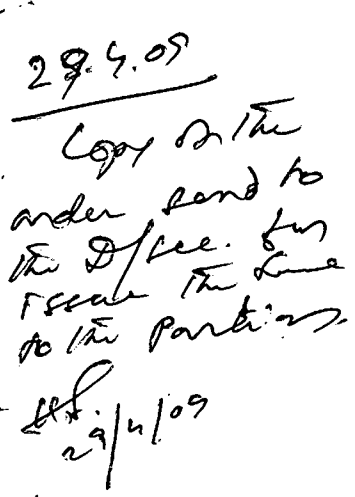 29.4.09
Copy of the
order send to
the D/sec. for
issue the same
to the parties.
29/4/09